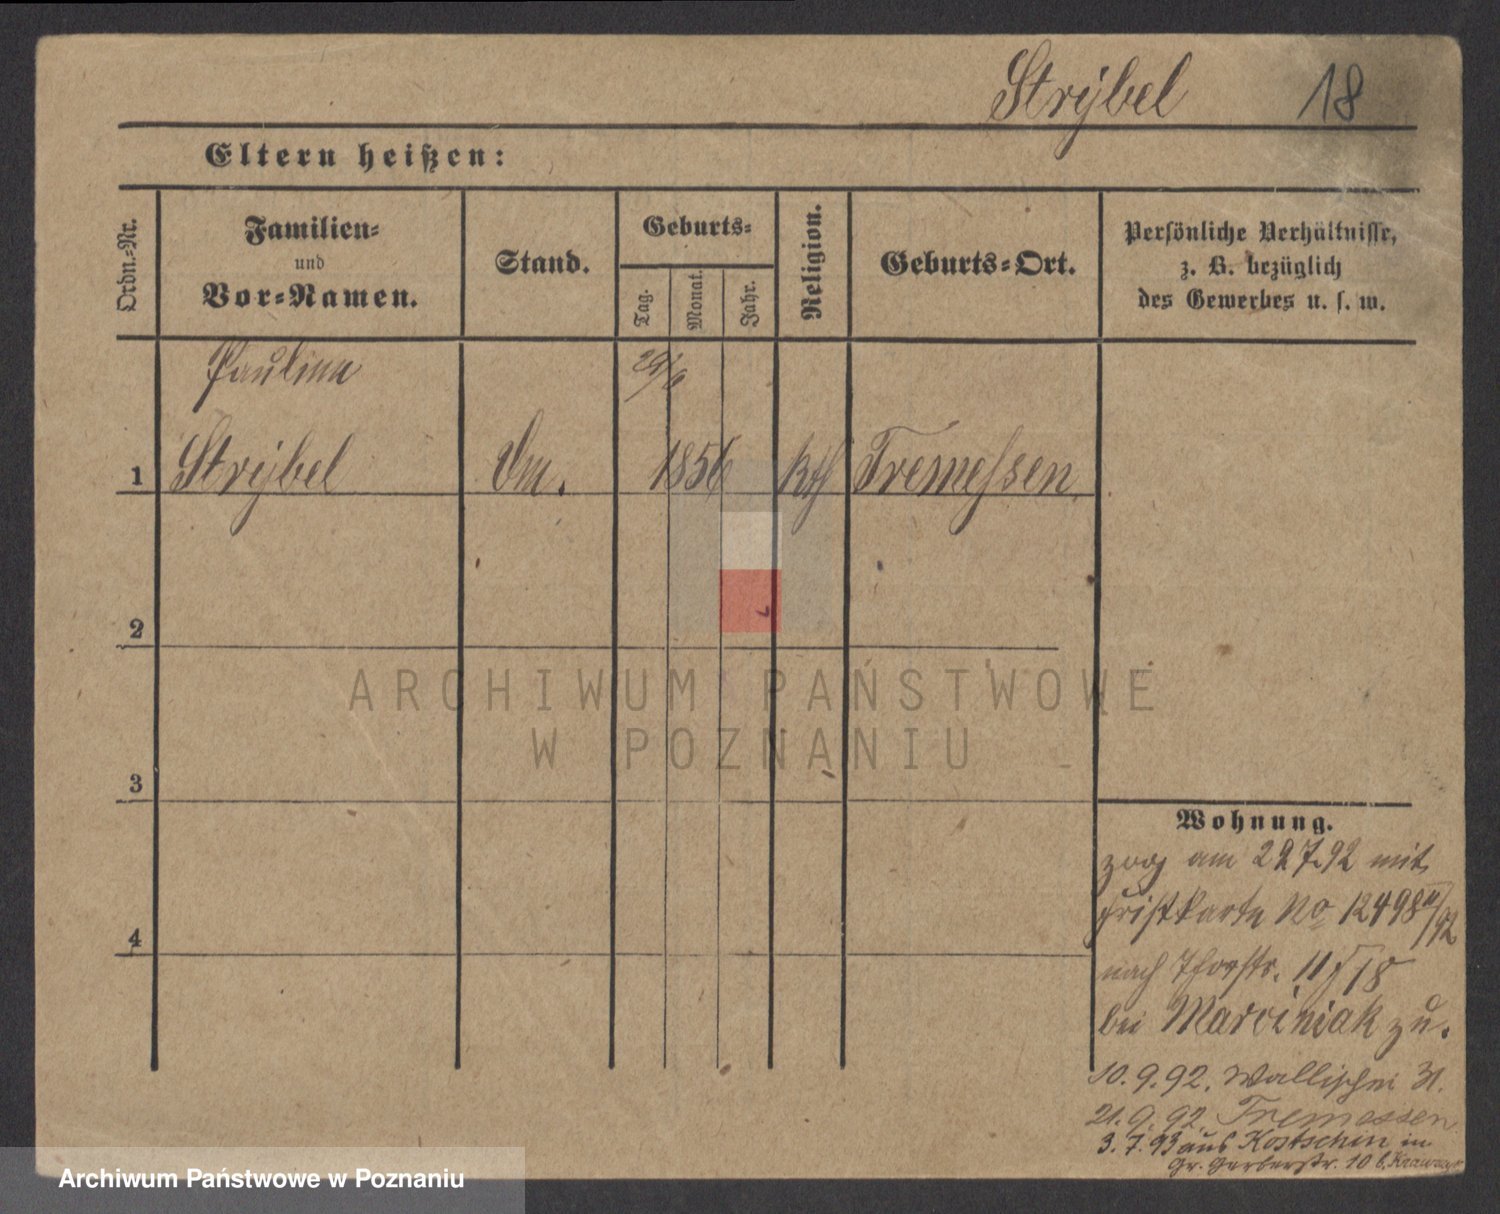 Strÿbel 18
Eltern heißen:
Ordn.-Nr.
Familien-
und
Vor-Namen.
Stand.
Geburts-
Tag.
Monat.
Jahr.
Religion.
Geburts-Ort.
Persönliche Verhältnisse,
z. B. bezüglich
des Gewerbes u. s. w.
Paulina 29/6
1 Strÿbel 1856 kth Tremessen
2
3
4
ARCHIWUM PAŃSTWOWE
W POZNANIU
Wohnung.
zog am 7.92 mit
Fristkarte No 12498 /92
nach Thorstr. 18
bei Marciniak zu.
10.9.92. Wallischei 31.
21.9.92. Tremessen
3.7.93 aus Kostschin in
Gr. Gerberstr. 10 b.
Archiwum Państwowe w Poznaniu